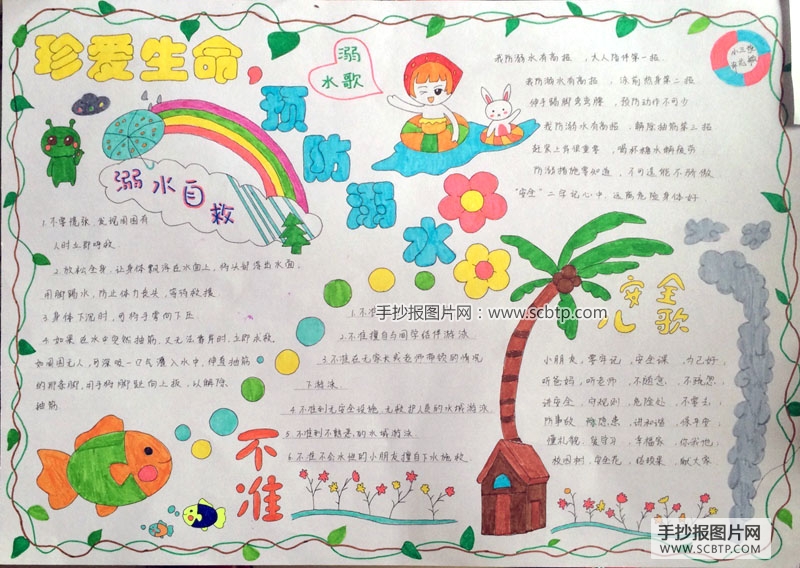 珍爱生命，
预防溺水
溺
水歌
我防溺水有高招，大人陪伴第一招
我防溺水有高招，泳前热身第二招
伸手踢脚弯弯腰，预防动作不可少
我防溺水有高招，解除抽筋第三招
赶紧上岸很重要，喝杯糖水解疲劳
防溺措施要知道，不可逞能不骄傲
"安全"二字记心中，远离危险身体好
溺水自救
1.不要慌张，发现周围有
人时立即呼救
2.放松全身，让身体飘浮在水面上，将头部浮出水面，
用脚踢水，防止体力丧失，等待救援
3.身体下沉时，可将手掌向下压
4.如果在水中突然抽筋，又无法靠岸时，立即求救
如周围无人，可深吸一口气潜入水中，伸直抽筋
的那条腿，用手将脚趾向上扳，以解除
抽筋
不准
1.不准
2.不准擅自与同学结伴游泳
3.不准在无家长或老师带领的情况
下游泳
4.不准到无安全设施、无救护人员的水域游泳
5.不准到不熟悉的水域游泳
6.不准不会水性的小朋友擅自下水施救
安全
儿歌
小朋友，要牢记，安全课，为己好，
听爸妈，听老师，不随意，不残忍，
讲安全，守规则，危险处，不要去，
防事故，除隐患，讲和谐，保平安，
懂礼貌，爱学习，幸福家，你我他，
校园树，安全花，结硕果，献大家
手抄报图片网：www.scbtp.com
手抄报图片网
WWW.SCBTP.COM